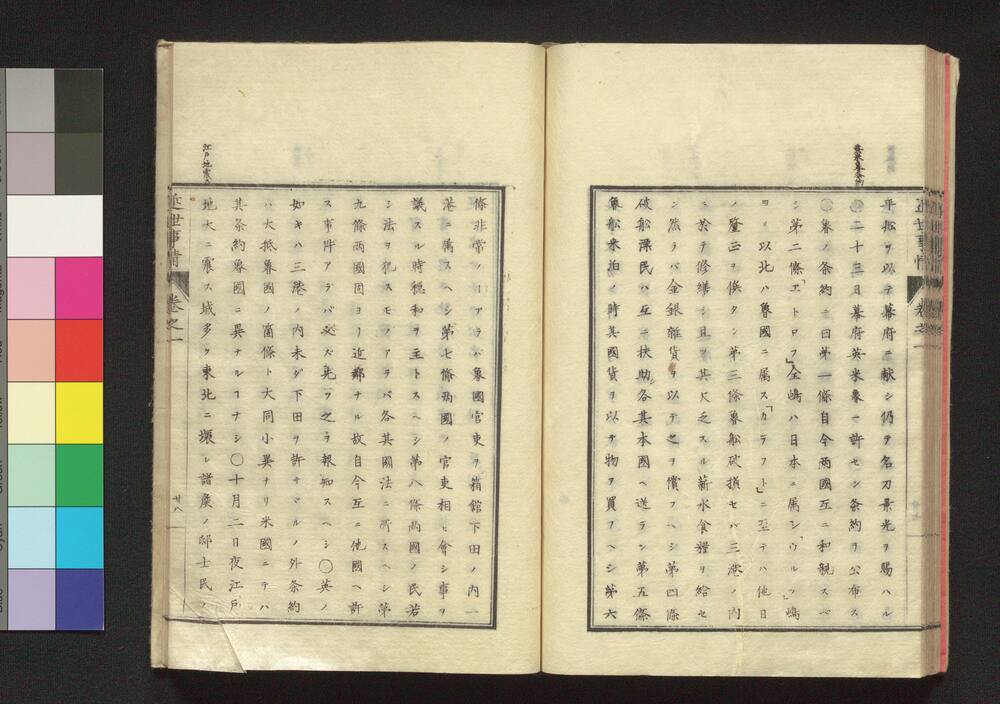 英米魯条約
平舩ヲ以テ幕府ニ献シ仍ヲ名刀景光ヲ賜ハル
二十三日幕府英米魯ニ許セシ条約ヲ公布ス
魯ノ条約ニ曰第一條自今両國互ニ和親スベ
シ第二條「ヱトロフ」全嶋ハ日本ニ属シ「ウルフ」嶋
ヨリ以北ハ魯國ニ属ス「カラフト」ニ至テハ他日
ノ釐正ヲ俟タン第三條魯舩破損セバ三港ノ内
ニ於テ修繕シ且ツ其欠乏スル薪水食糧ヲ給セ
ン然ラバ金銀雑貨ヲ以テ之ヲ償フヘシ第四條
破舩漂民ハ互ニ扶助シ各其本國ヘ送ラン第五條
魯舩来泊ノ時其國貨ヲ以テ物ヲ買フヘシ第六
近世事情 巻之一
條非常ノヿアラバ魯國官吏ヲ箱館下田ノ内一
港ニ属スヘシ第七條両國ノ官吏相ヒ會シ事ヲ
議スル時穏和ヲ主トスヘシ第八條両國ノ民若
シ法ヲ犯スモノアラバ各其國法ニ所スヘシ第
九條両國固ヨリ近鄰ナル故自今互ニ他國ヘ許
ス事件アラバ必ズ先ツ之ヲ報知スヘシ〇英ノ
如キハ三港ノ内未ダ下田ヲ許サヾルノ外条約
ハ大抵魯國ノ箇條ト大同小異ナリ米國ニテハ
其条約魯國ニ異ナルヿナシ〇十月二日夜江戸
江戸地震
地大ニ震ス城多ク東北ニ壊レ諸矦ノ邸士民ノ
近世事情 巻之一 廿八